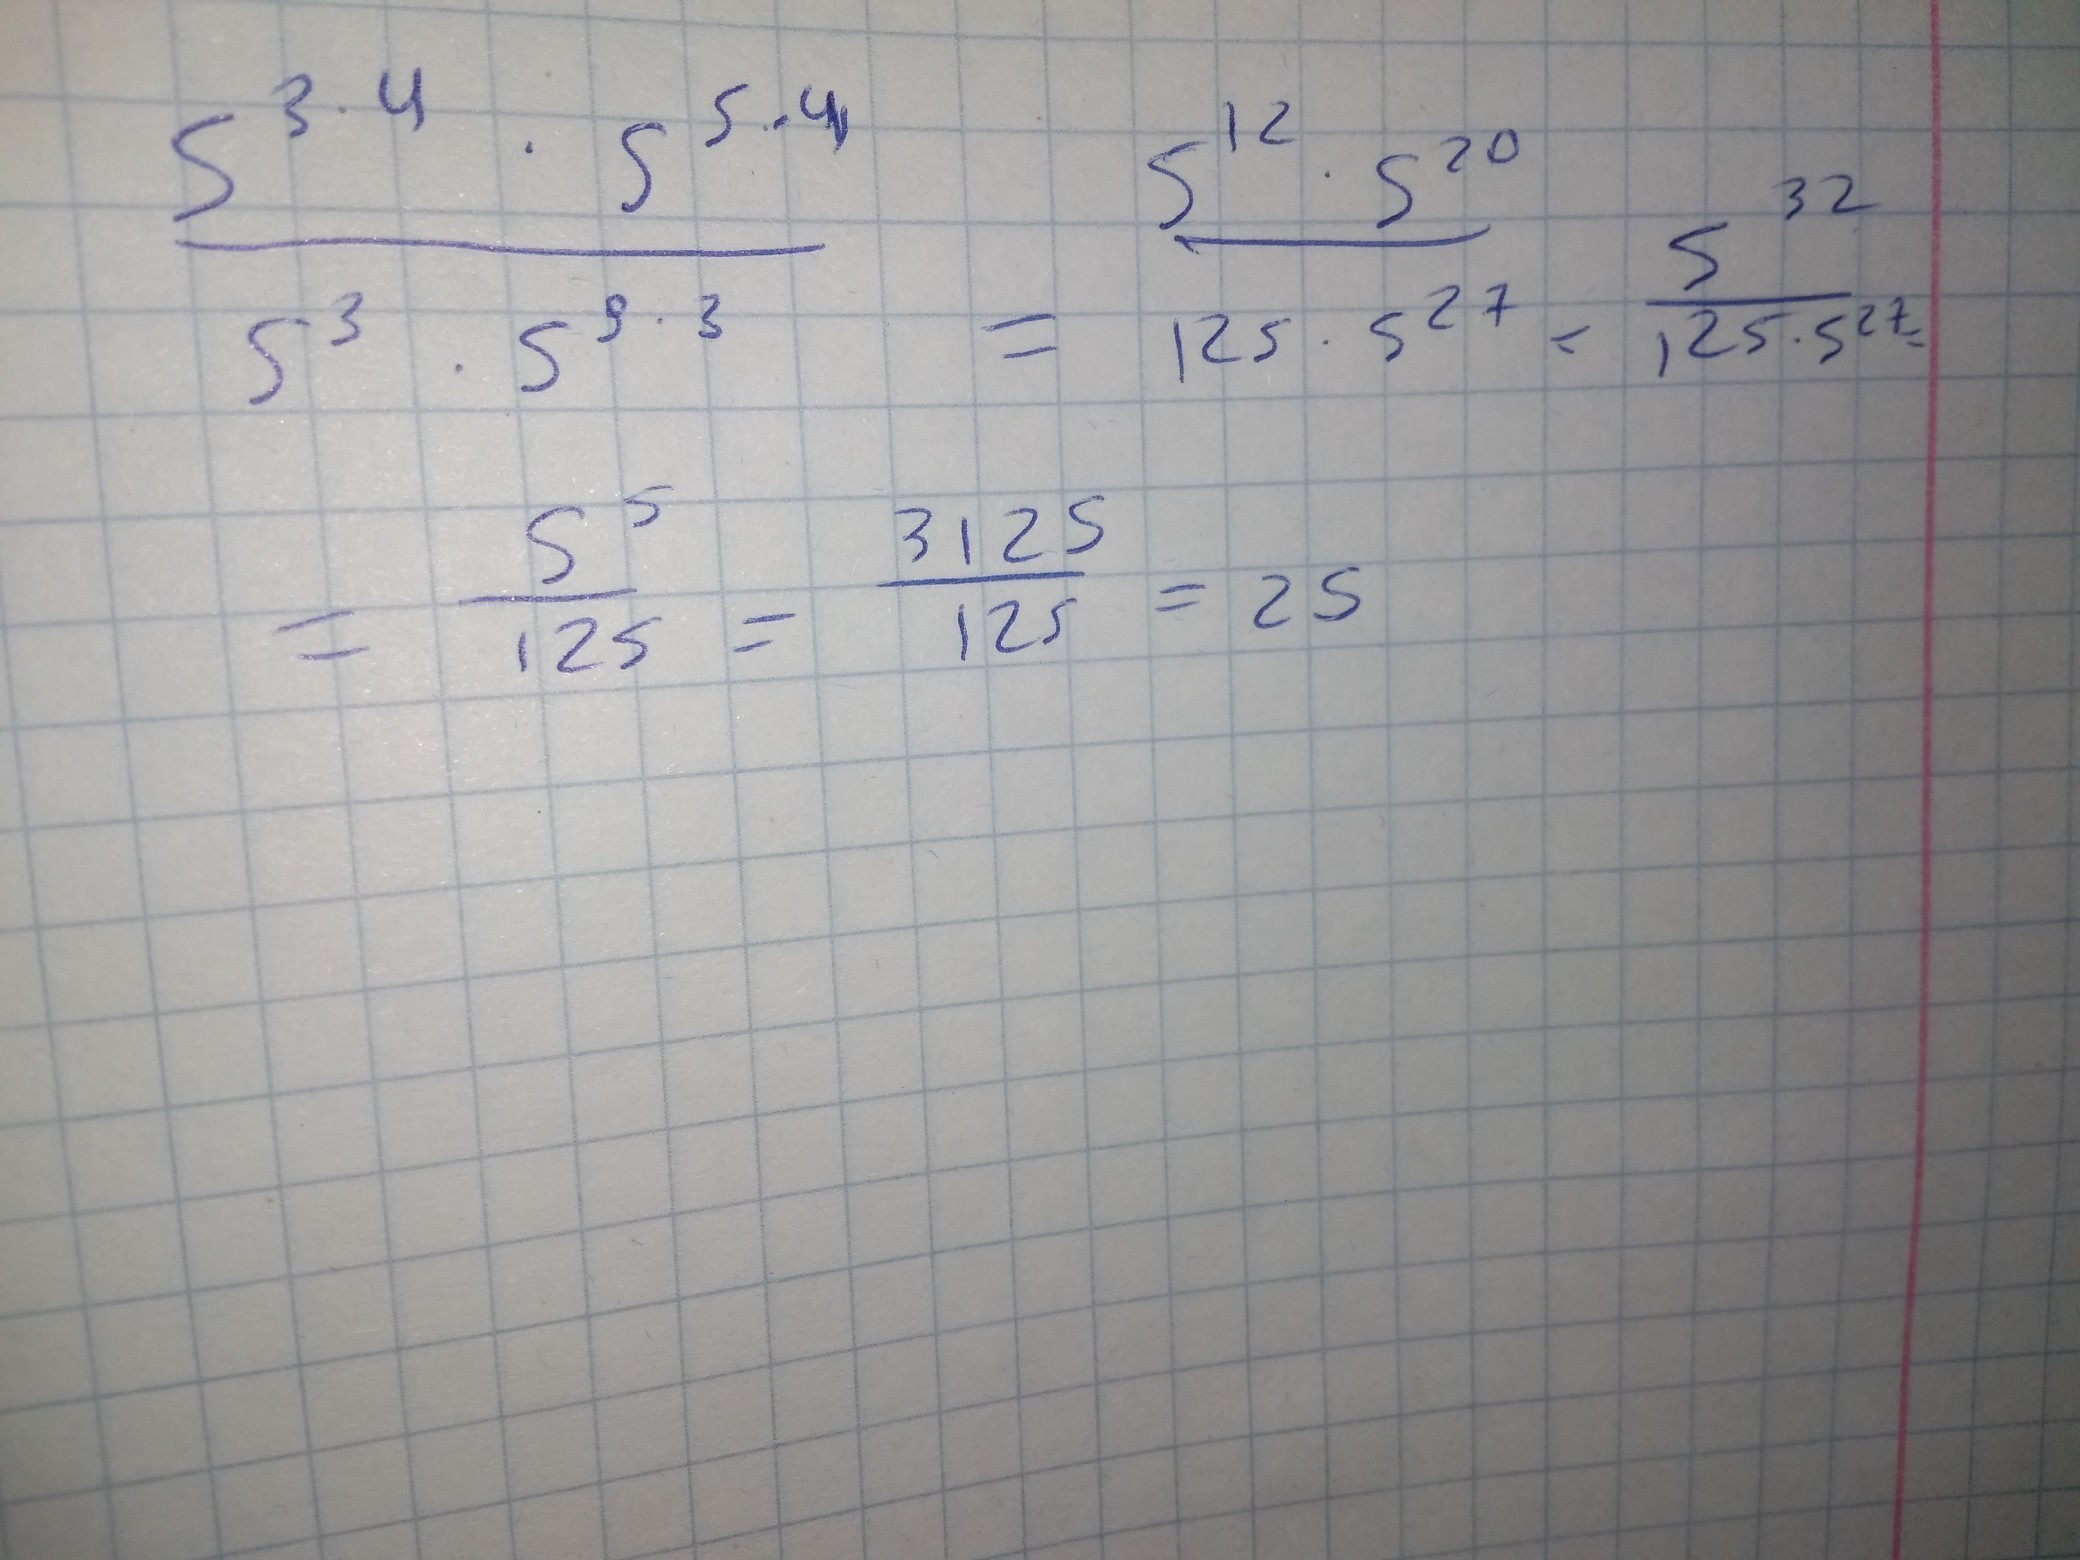 5^{3·4} · 5^{5·4} / 5^3 · 5^{9·3} = 5^{12} · 5^{20} / 125 · 5^{27} = 5^{32} / 125 · 5^{27} =
= 5^5 / 125 = 3125 / 125 = 25